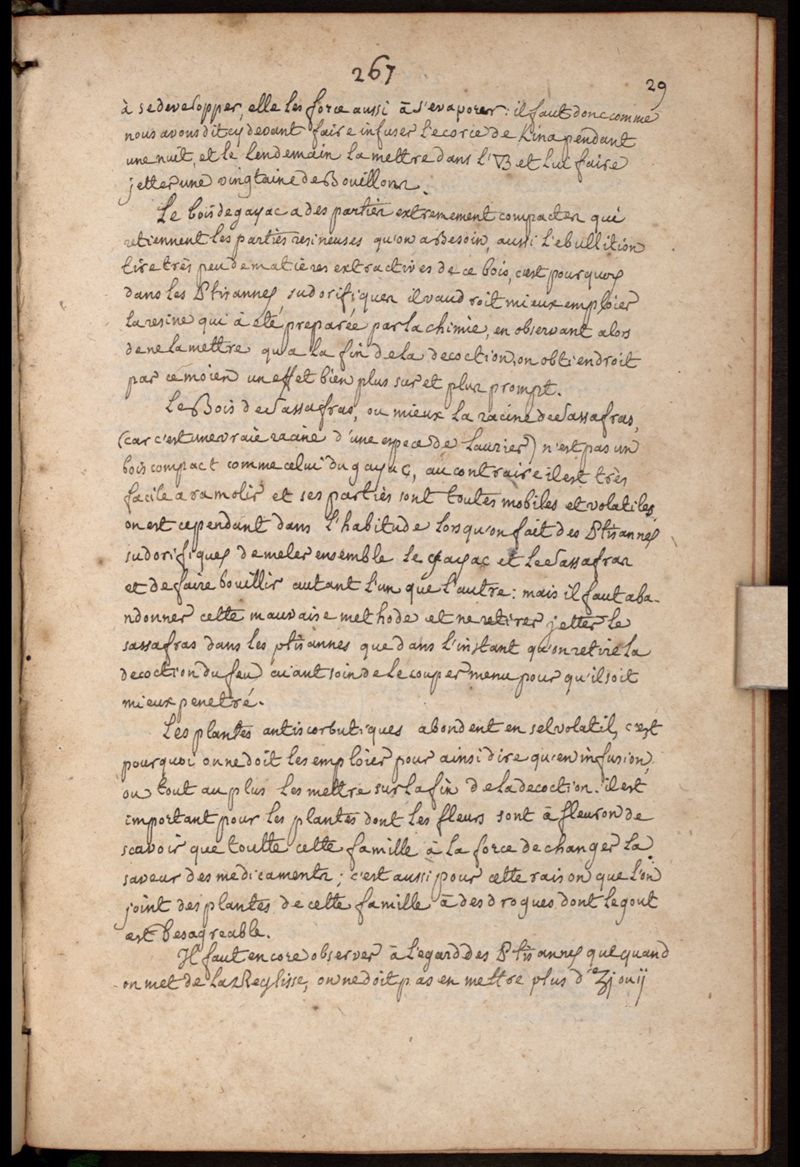 267
29
à se developper, elle les force aussi à s'evaporer: il faut donc comme
nous avons dit cy devant faire infuser l'ecorce de Kina pendant
une nuit, et le lendemain la mettre dans l' et lui faire
jetter une vingtaine de Bouillons.
Le bois de gayac a des parties extremement compactes qui
retiennent les parties resineuses qu'on a Besoin, aussi l'ebullition
tire très peu de matieres extractives de ce bois, c'est pourquoy
dans les Ptisannes sudorifiques il vaudroit mieux emploier
la resine qui à été préparée par la chimie, en observant alors
de ne la mettre qu'a la fin de la decoction, on obtiendroit
par ce moien un effet bien plus sur et plus prompt.
Le Bois de Sassafras, ou mieux la racine de Sassafras,
(car c'est une vraie racine d'une espece de Laurier) n'est pas un
bois compact comme celui du gayac, au contraire il est très
facile a ramolir et ses parties sont toutes mobiles et volatiles,
on est cependant dans l'habitude lorsqu'on fait des Ptisannes
sudorifiques de meler ensemble le gayac et le Sassafras
et de faire bouillir autant l'un que l'autre: mais il faut aba-
ndonner cette mauvaise methode et ne retirer jetter le
sassafras dans les ptisannes que dans l'instant qu'on retire la
decoction du feu aiant soin de le couper menu pour qu'il soit
mieux penetré.
Les plantes antiscorbutiques abondent en sel volatil, c'est
pourquoi on ne doit les emploier pour ainsi dire qu'en infusion,
ou tout au plus les mettre sur la fin de la decoction. il est
important pour les plantes dont les fleurs sont à fleuron de
scavoir que toutte cette famille à la force de changer la
saveur des medicaments; c'est aussi pour cette raison que l'on
joint des plantes de cette famille à des drogues dont le gout
est desagreable.
Il faut encore observer à l'egard des Ptisannes que quand
on met de la Reglisse, on ne doit pas en mettre plus d'ʒj ou ij